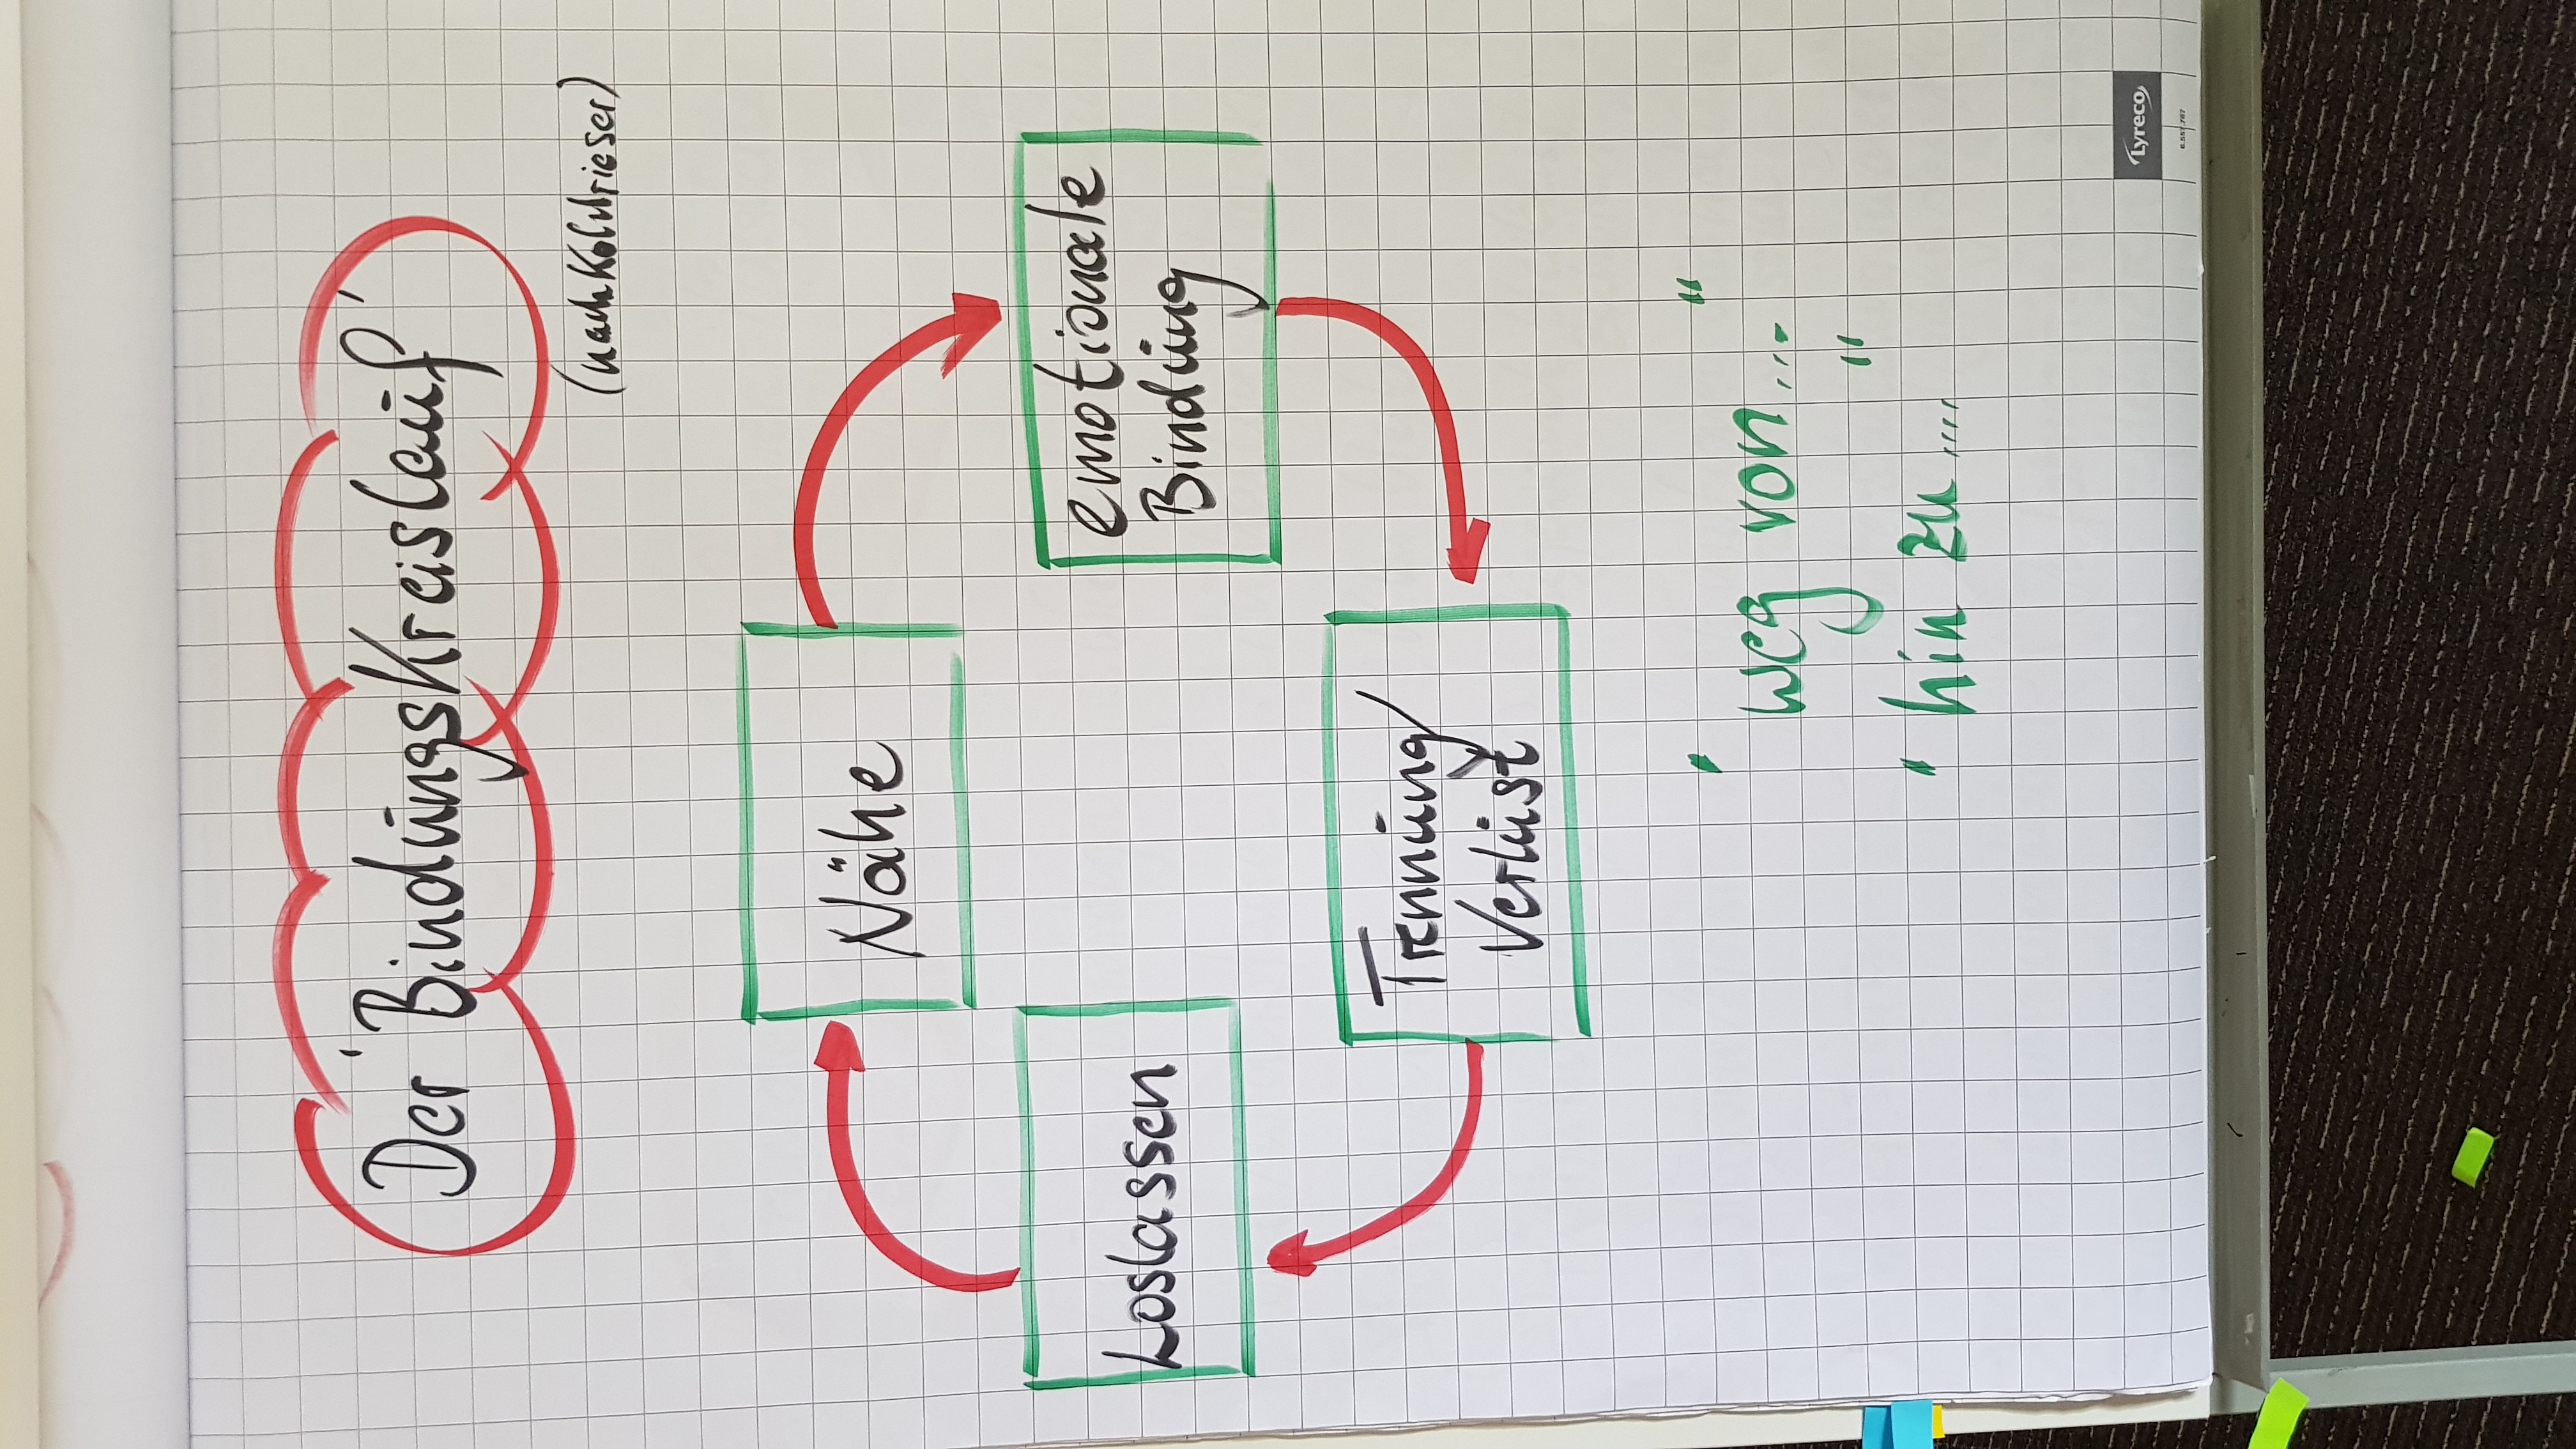 Der 'Bindungskreislauf'
(nach Kohlrieser)
Nähe
emotionale
Bindung
Trennung/
Verlust
Loslassen
" weg von... "
" hin zu.... "
Lyreco